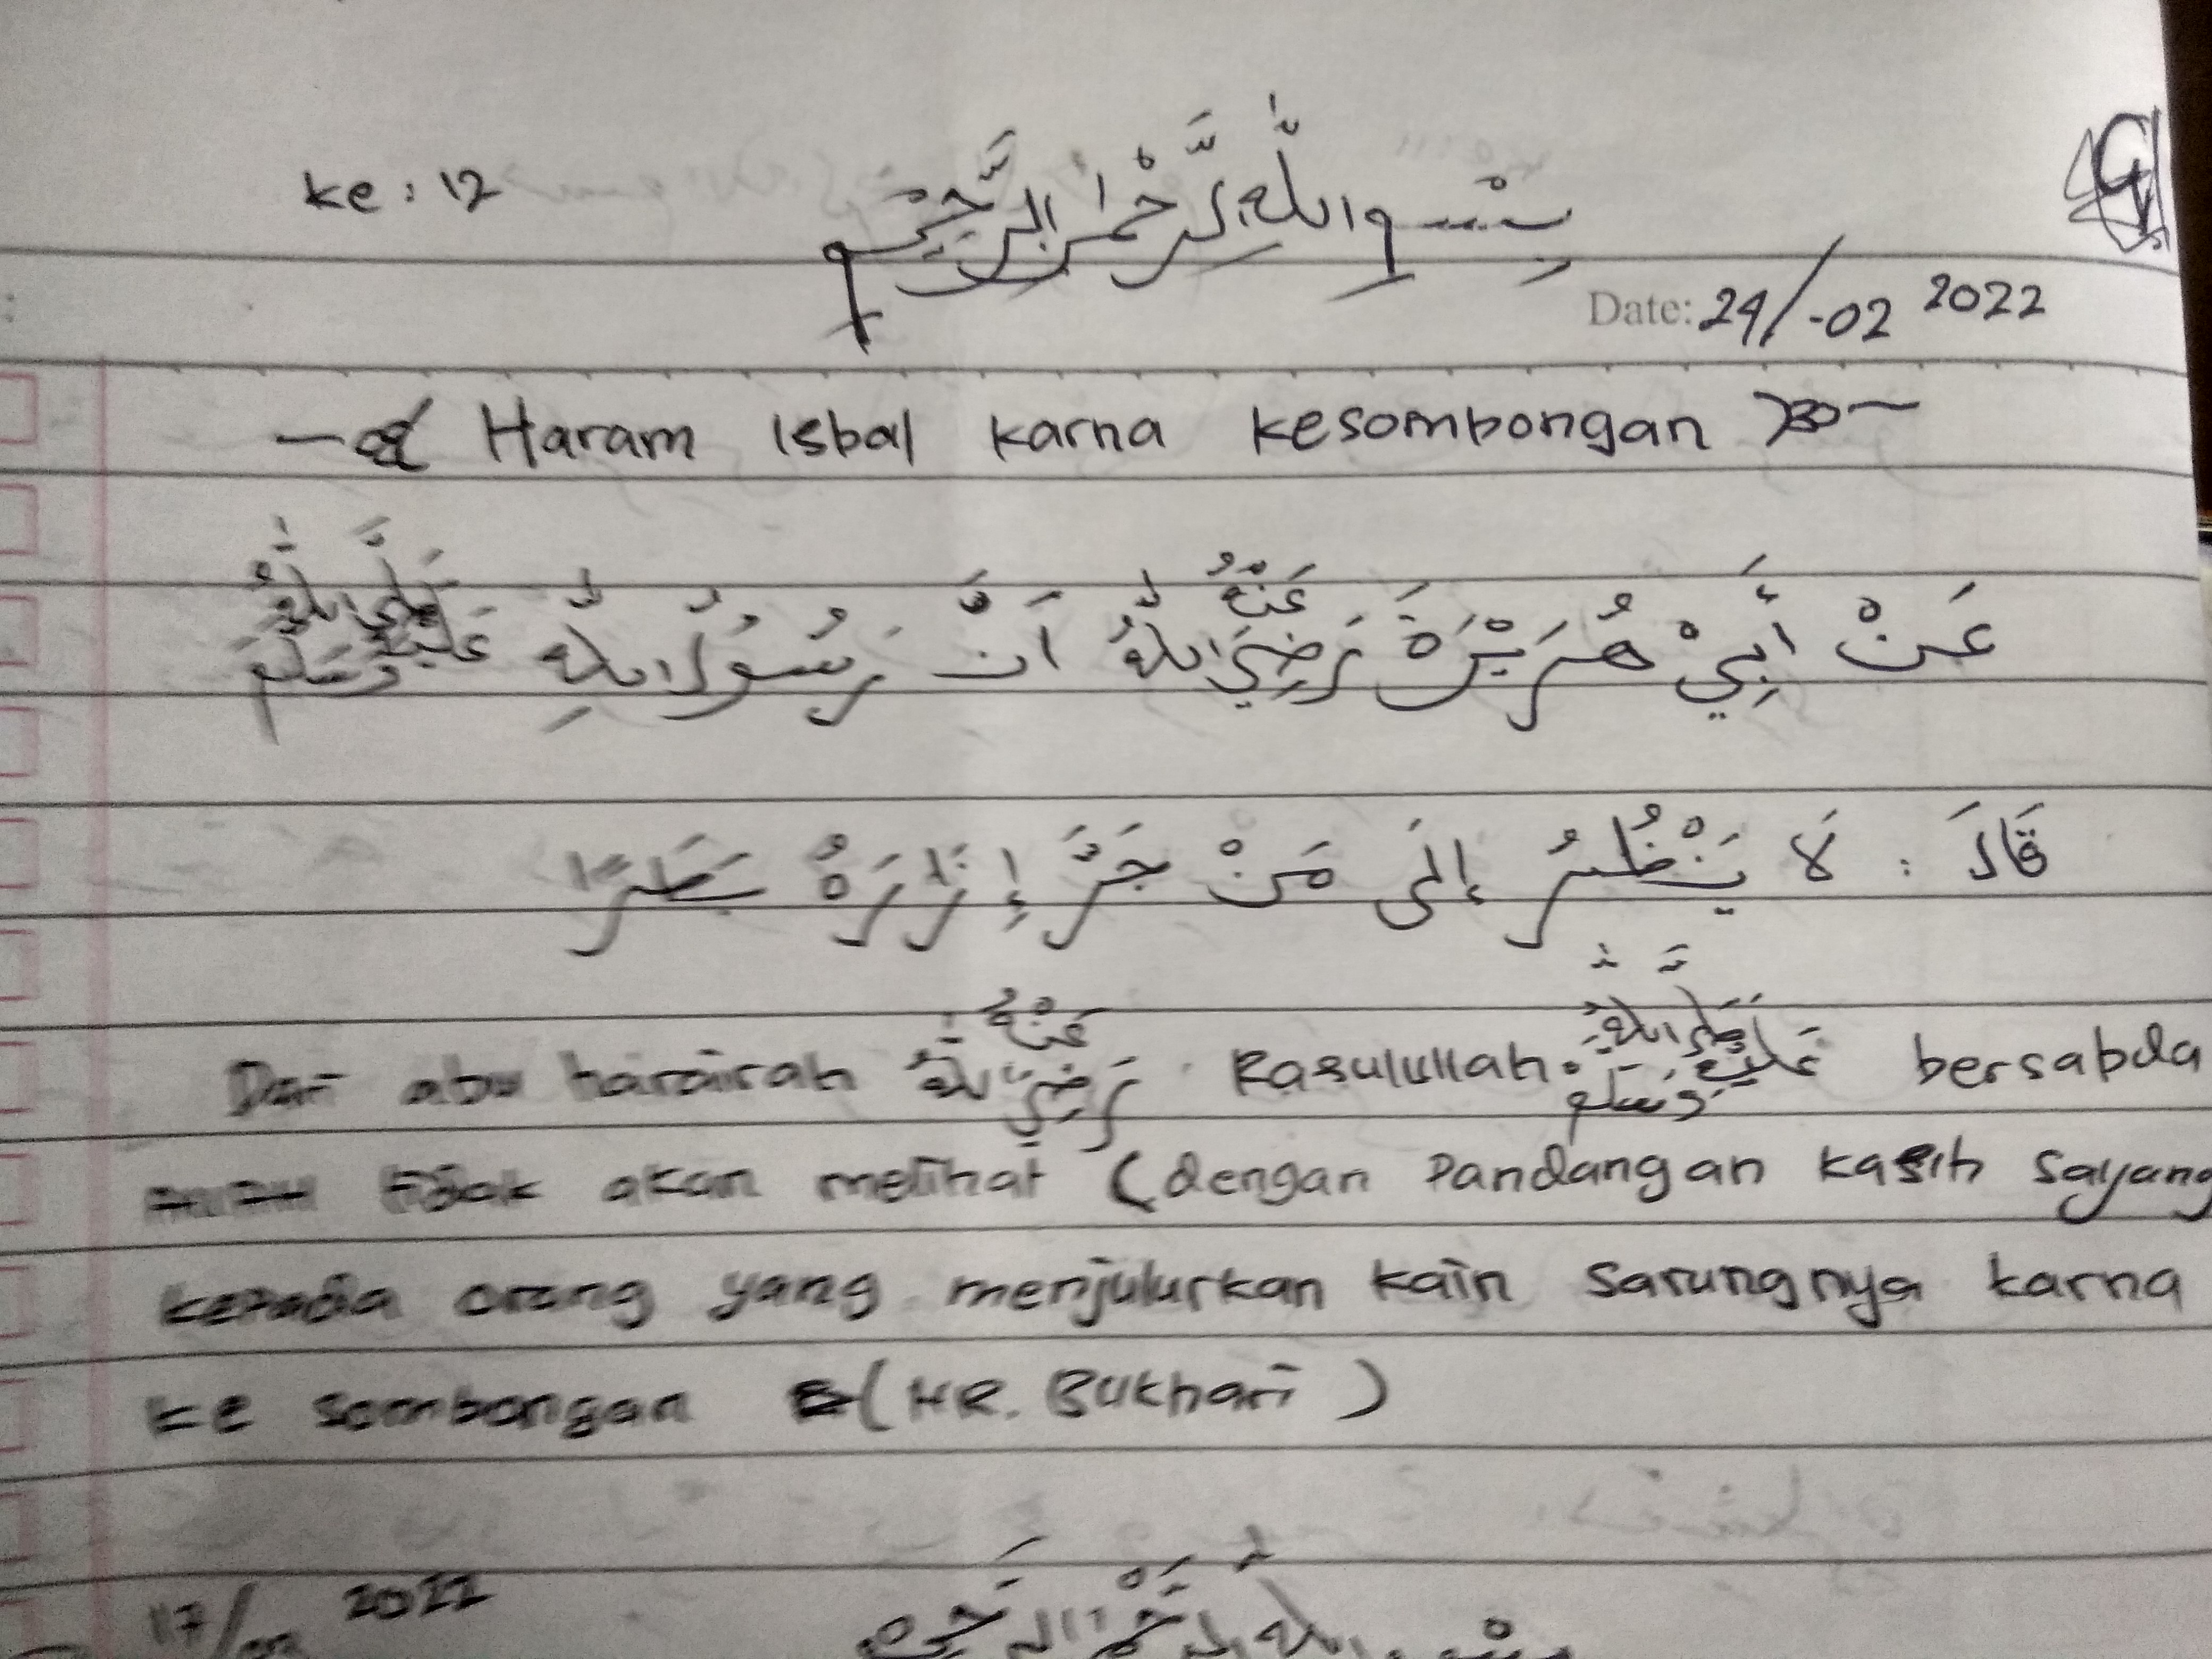 ke : 12
بِسْمِ اللّٰهِ الرَّحْمٰنِ الرَّحِيْمِ
Date: 24/-02 2022
Haram Isbal karna kesombongan
عَنْ أَبِيْ هُرَيْرَةَ رَضِيَ اللّٰهُ عَنْهُ اَنَّ رَسُوْلُ اللّٰهِ صَلَّى اللّٰهُ عَلَيْهِ وَسَلَّمَ
قَالَ : لَا يَنْظُرُ إِلَى مَنْ جَرَّ إِزَارَهُ بَطَرًا
Dari abu harairah رَضِيَ اللّٰهُ عَنْهُ. Rasulullah صَلَّى اللّٰهُ عَلَيْهِ وَسَلَّم bersabda
tidak akan melihat (dengan Pandangan kasih sayang
kepada orang yang menjulurkan kain sarungnya karna
ke sombongan (HR. Bukhari)
17/ 2022